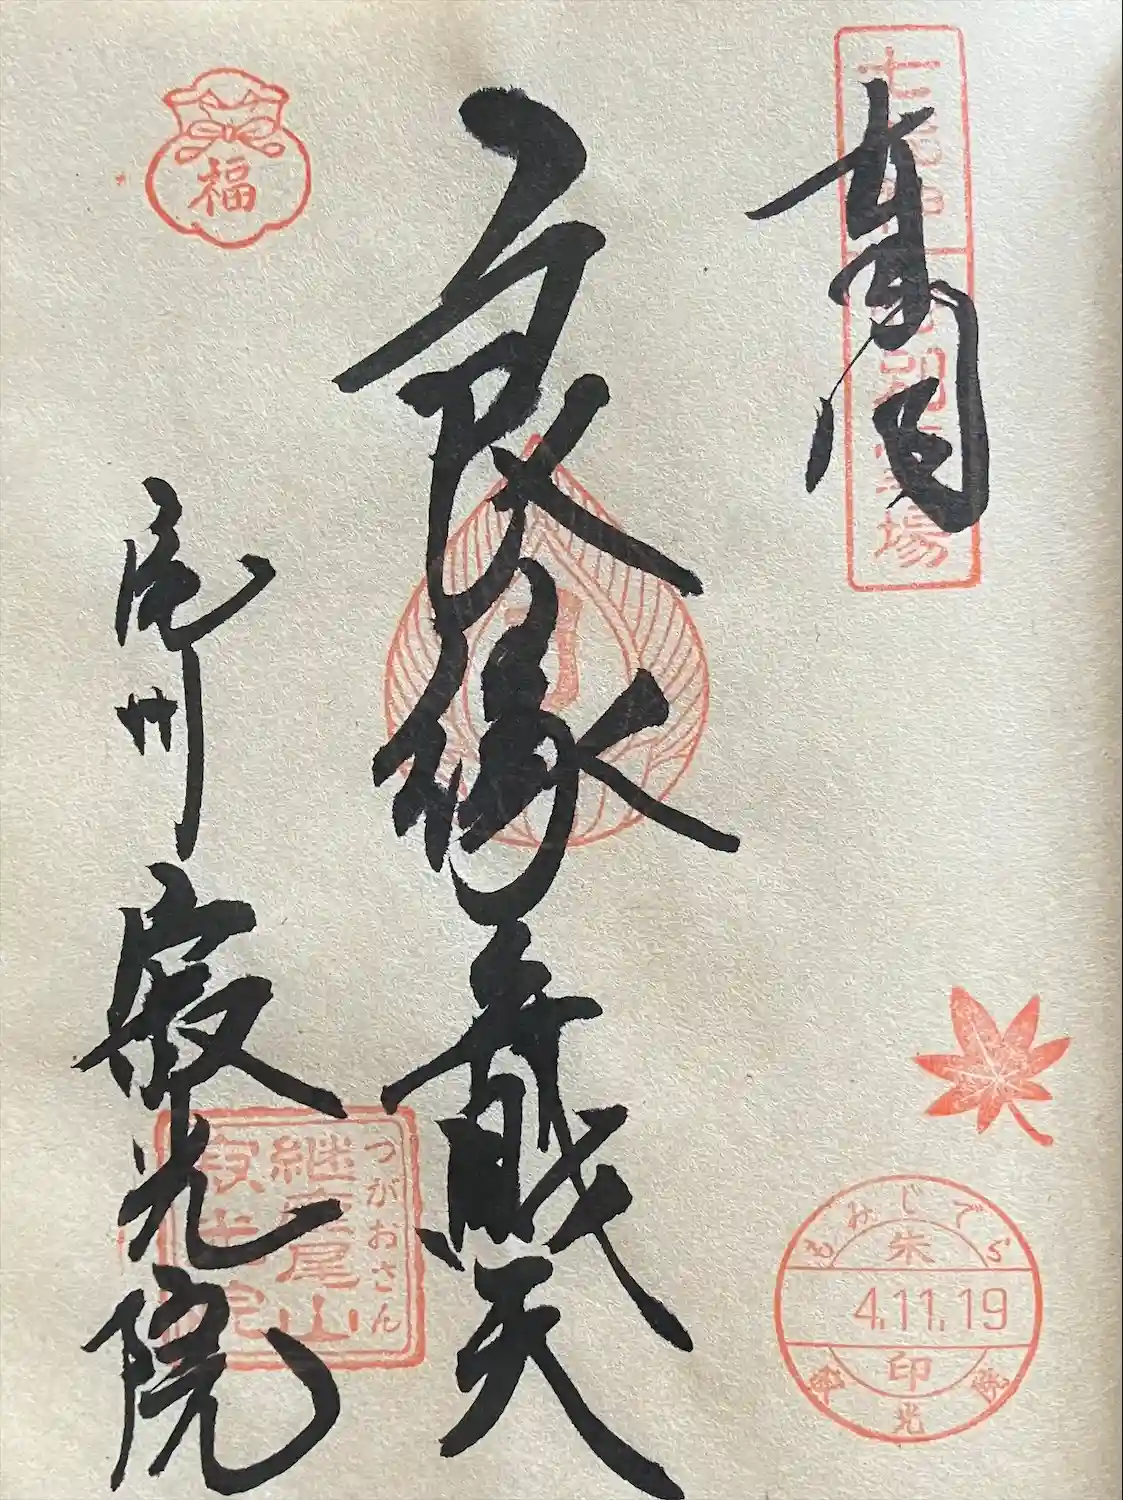 奉拝
良縁弁財天
尾州
寂光院
福
つがおさん
継鹿尾山
寂光院
もみじでら
朱
4.11.19
印
寂光院